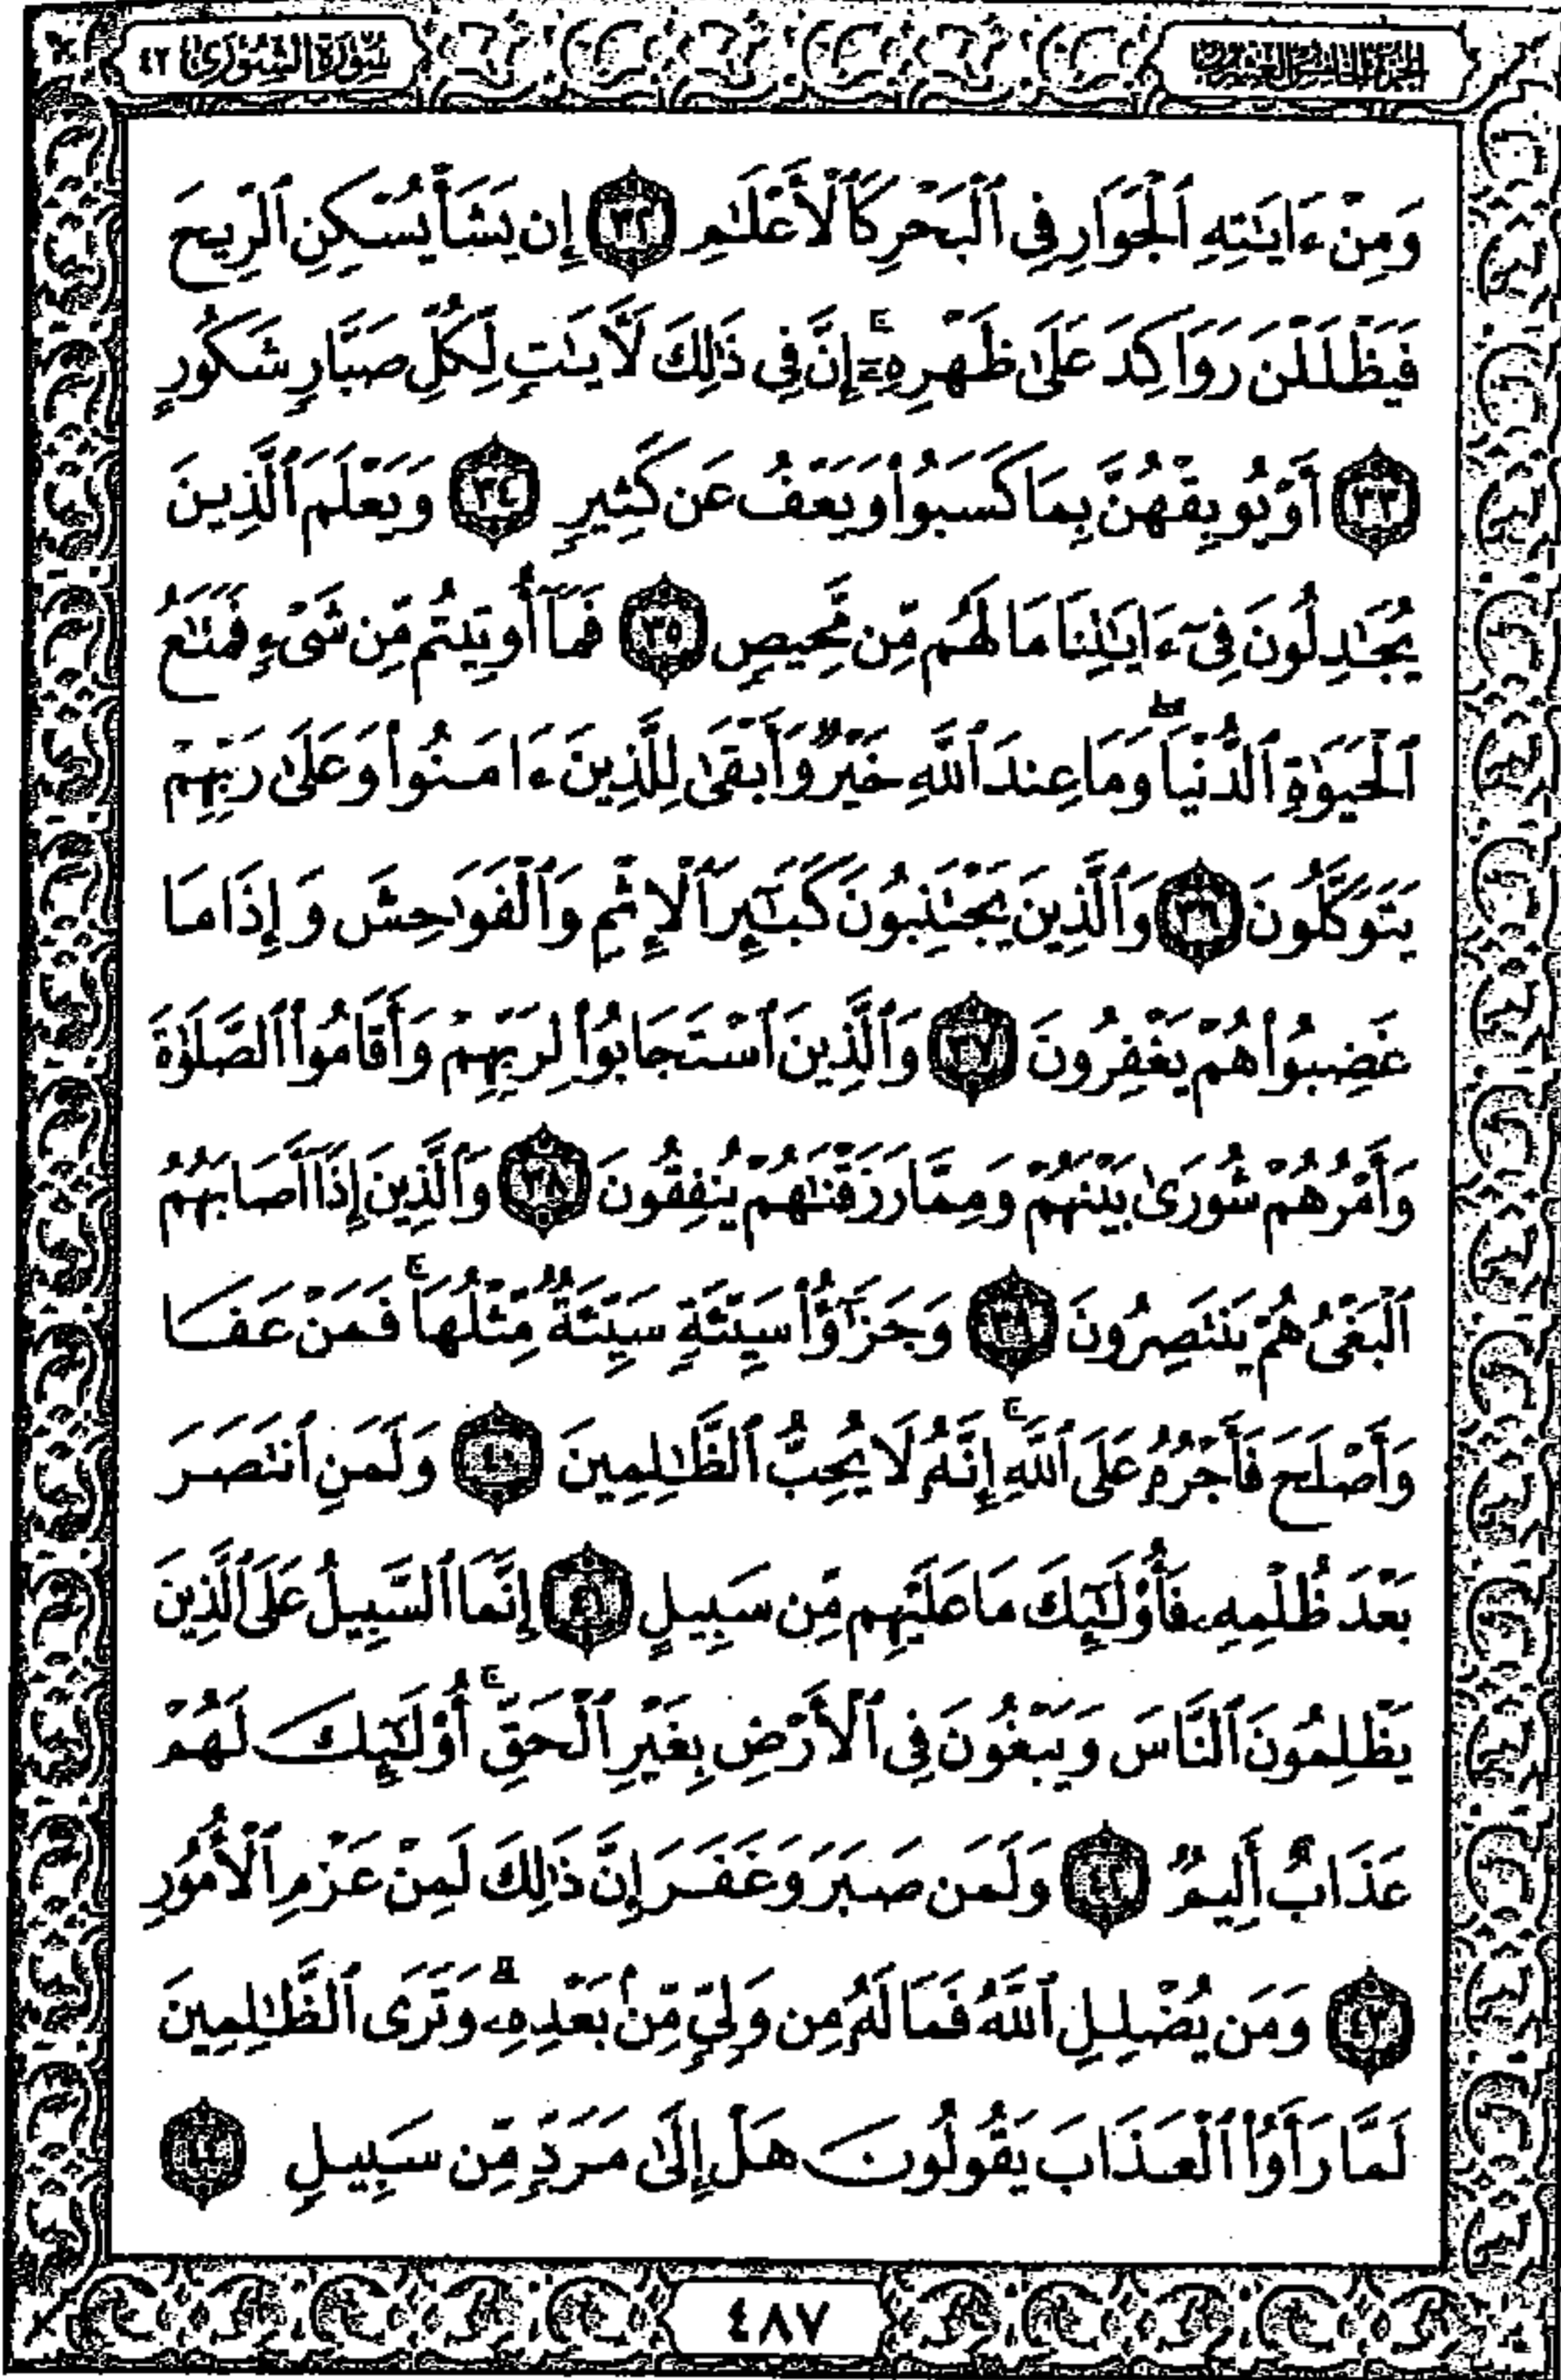 الجزء الخامس والعشرون
سورة الشورى ٤٢
وَمِنْ ءَايَٰتِهِ ٱلْجَوَارِ فِى ٱلْبَحْرِ كَٱلْأَعْلَٰمِ ٣٢ إِن يَشَأْ يُسْكِنِ ٱلرِّيحَ
فَيَظْلَلْنَ رَوَاكِدَ عَلَىٰ ظَهْرِهِۦٓ ۚ إِنَّ فِى ذَٰلِكَ لَءَايَٰتٍ لِّكُلِّ صَبَّارٍ شَكُورٍ
٣٣ أَوْ يُوبِقْهُنَّ بِمَا كَسَبُوا۟ وَيَعْفُ عَن كَثِيرٍ ٣٤ وَيَعْلَمَ ٱلَّذِينَ
يُجَٰدِلُونَ فِىٓ ءَايَٰتِنَا مَا لَهُم مِّن مَّحِيصٍ ٣٥ فَمَآ أُوتِيتُم مِّن شَىْءٍ فَمَتَٰعُ
ٱلْحَيَوٰةِ ٱلدُّنْيَا ۖ وَمَا عِندَ ٱللَّهِ خَيْرٌ وَأَبْقَىٰ لِلَّذِينَ ءَامَنُوا۟ وَعَلَىٰ رَبِّهِمْ
يَتَوَكَّلُونَ ٣٦ وَٱلَّذِينَ يَجْتَنِبُونَ كَبَٰٓئِرَ ٱلْإِثْمِ وَٱلْفَوَٰحِشَ وَإِذَا مَا
غَضِبُوا۟ هُمْ يَغْفِرُونَ ٣٧ وَٱلَّذِينَ ٱسْتَجَابُوا۟ لِرَبِّهِمْ وَأَقَامُوا۟ ٱلصَّلَوٰةَ
وَأَمْرُهُمْ شُورَىٰ بَيْنَهُمْ وَمِمَّا رَزَقْنَٰهُمْ يُنفِقُونَ ٣٨ وَٱلَّذِينَ إِذَآ أَصَابَهُمُ
ٱلْبَغْىُ هُمْ يَنتَصِرُونَ ٣٩ وَجَزَٰٓؤُا۟ سَيِّئَةٍ سَيِّئَةٌ مِّثْلُهَا ۖ فَمَنْ عَفَا
وَأَصْلَحَ فَأَجْرُهُۥ عَلَى ٱللَّهِ ۚ إِنَّهُۥ لَا يُحِبُّ ٱلظَّٰلِمِينَ ٤٠ وَلَمَنِ ٱنتَصَرَ
بَعْدَ ظُلْمِهِۦ فَأُو۟لَٰٓئِكَ مَا عَلَيْهِم مِّن سَبِيلٍ ٤١ إِنَّمَا ٱلسَّبِيلُ عَلَى ٱلَّذِينَ
يَظْلِمُونَ ٱلنَّاسَ وَيَبْغُونَ فِى ٱلْأَرْضِ بِغَيْرِ ٱلْحَقِّ ۚ أُو۟لَٰٓئِكَ لَهُمْ
عَذَابٌ أَلِيمٌ ٤٢ وَلَمَن صَبَرَ وَغَفَرَ إِنَّ ذَٰلِكَ لَمِنْ عَزْمِ ٱلْأُمُورِ
٤٣ وَمَن يُضْلِلِ ٱللَّهُ فَمَا لَهُۥ مِن وَلِىٍّ مِّنۢ بَعْدِهِۦ ۗ وَتَرَى ٱلظَّٰلِمِينَ
لَمَّا رَأَوُا۟ ٱلْعَذَابَ يَقُولُونَ هَلْ إِلَىٰ مَرَدٍّ مِّن سَبِيلٍ ٤٤
٤٨٧